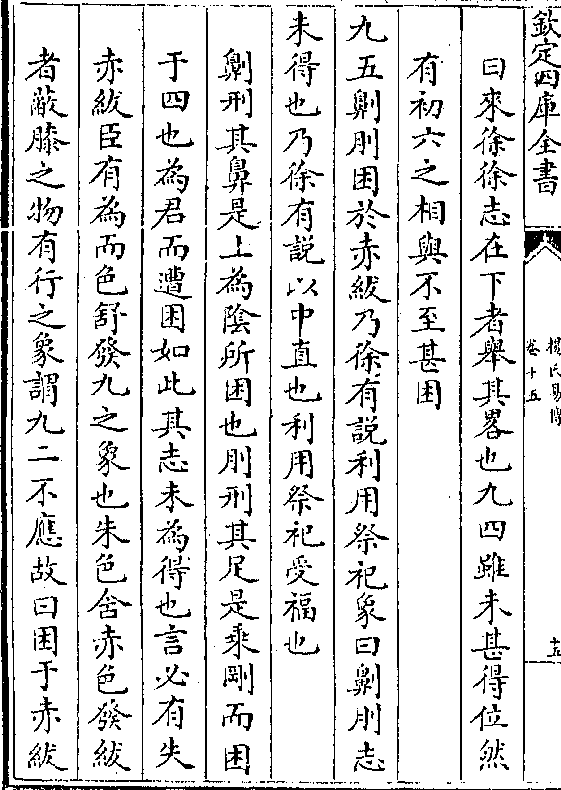 欽定四庫全書
楊氏易傳
卷十五
十五
曰來徐徐志在下者舉其畧也九四雖未甚得位然
有初六之相與不至甚困
九五劓刖困於赤紱乃徐有説利用祭祀象曰劓刖志
未得也乃徐有説以中直也利用祭祀受福也
劓刑其鼻是上為陰所困也刖刑其足是乘剛而困
于四也為君而遭困如此其志未為得也言必有失
赤紱臣有為而色舒發九之象也朱色含赤色發紱
者蔽膝之物有行之象謂九二不應故曰困于赤紱